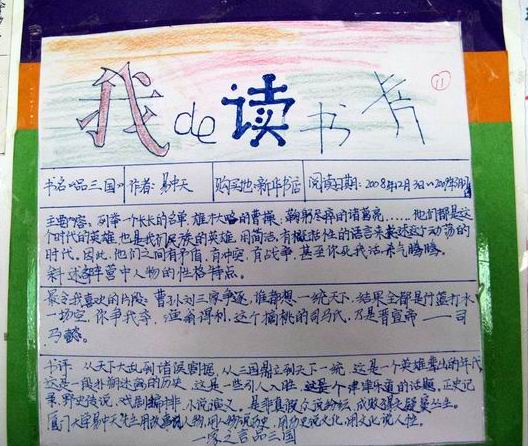 我de读书卡
11
书名《品三国》 作者：易中天 购买地：新华书店 阅读日期：2008年12月3日~2009年
主要内容：列举一个长长的名单 雄才大略的曹操；鞠躬尽瘁的诸葛亮……他们都是这
个时代的英雄 也是我们民族的英雄 用简洁，有概括性的语言来叙述这个动荡的
时代。因此，他们之间有矛盾，有冲突，有战争，甚至你死我活杀气腾腾。
斜述群营中人物的性格特点。
最令我喜欢的片段：曹孙刘三家争逐，谁都想一统天下，结果全都是竹篮打水
一场空，你争我夺，渔翁得利，这个摘桃的司马氏，乃是晋宣帝——司
马懿。
书评：从天下大乱到诸侯割据，从三国鼎立到天下一统，这是一个英雄辈出的年代
这是一段扑朔迷离的历史，这是一些引人入胜，这是个津津乐道的话题，正史记
录，野史传说，戏剧编排，小说演义，是非真假众说纷纭，成败得失疑案丛生。
厦门大学易中天先生用故事说人物，用人物说历史，用历史说文化，用文化说人性。
一家之言品三国